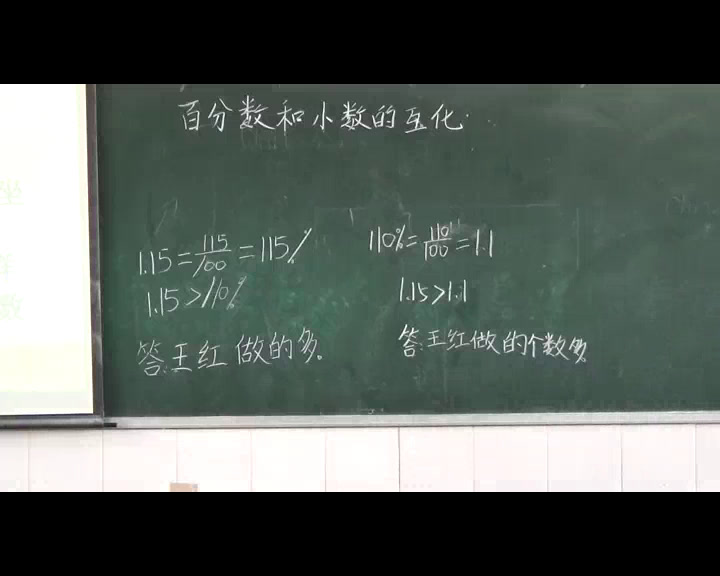 百分数和小数的互化
1.15=115/100=115%
1.15>110%
答:王红做的多。
110%=110/100=1.1
1.15>1.1
答:王红做的个数多